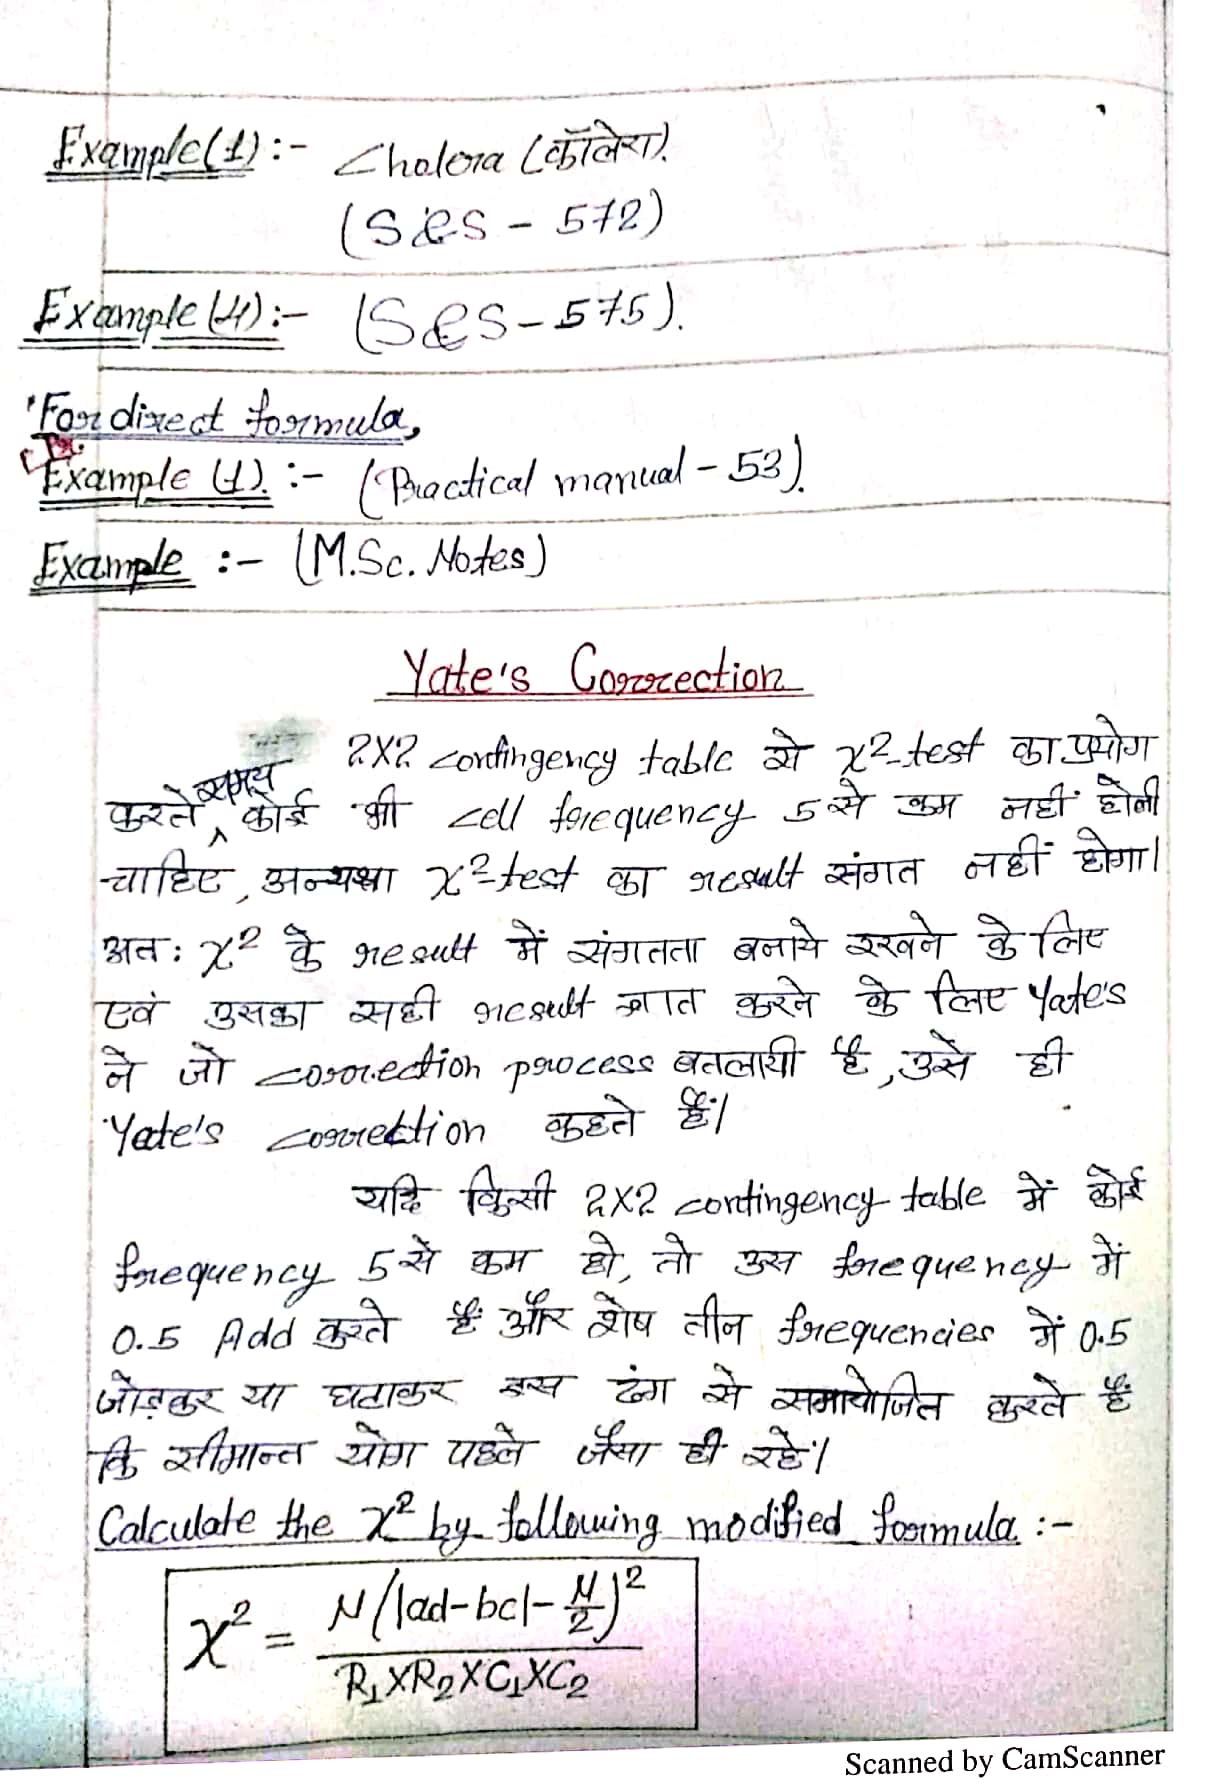 Example(1):- Cholera (कॉलेरा).
(S&S - 572)
Example(4):- (S&S - 575).
For direct formula,
Example (1). :- (Practical manual - 53).
Example :- (M.Sc. Notes)
Yate's Correction
2X2 contingency table से χ²-test का प्रयोग
करते समय कोई भी cell frequency 5 से कम नहीं होनी
चाहिए, अन्यथा χ²-test का result संगत नहीं होगा।
अत: χ² के result में संगतता बनाये रखने के लिए
एवं उसका सही result ज्ञात करने के लिए Yate's
ने जो correction process बतलायी है, उसे ही
Yate's correction कहते हैं।
यदि किसी 2X2 contingency table में कोई
frequency 5 से कम हो, तो उस frequency में
0.5 Add करते हैं और शेष तीन frequencies में 0.5
जोड़कर या घटाकर इस ढंग से समायोजित करते हैं
कि सीमान्त योग पहले जैसा ही रहे।
Calculate the χ² by following modified formula :-
χ² = N(|ad-bc|-N/2)² / R₁XR₂XC₁XC₂
Scanned by CamScanner